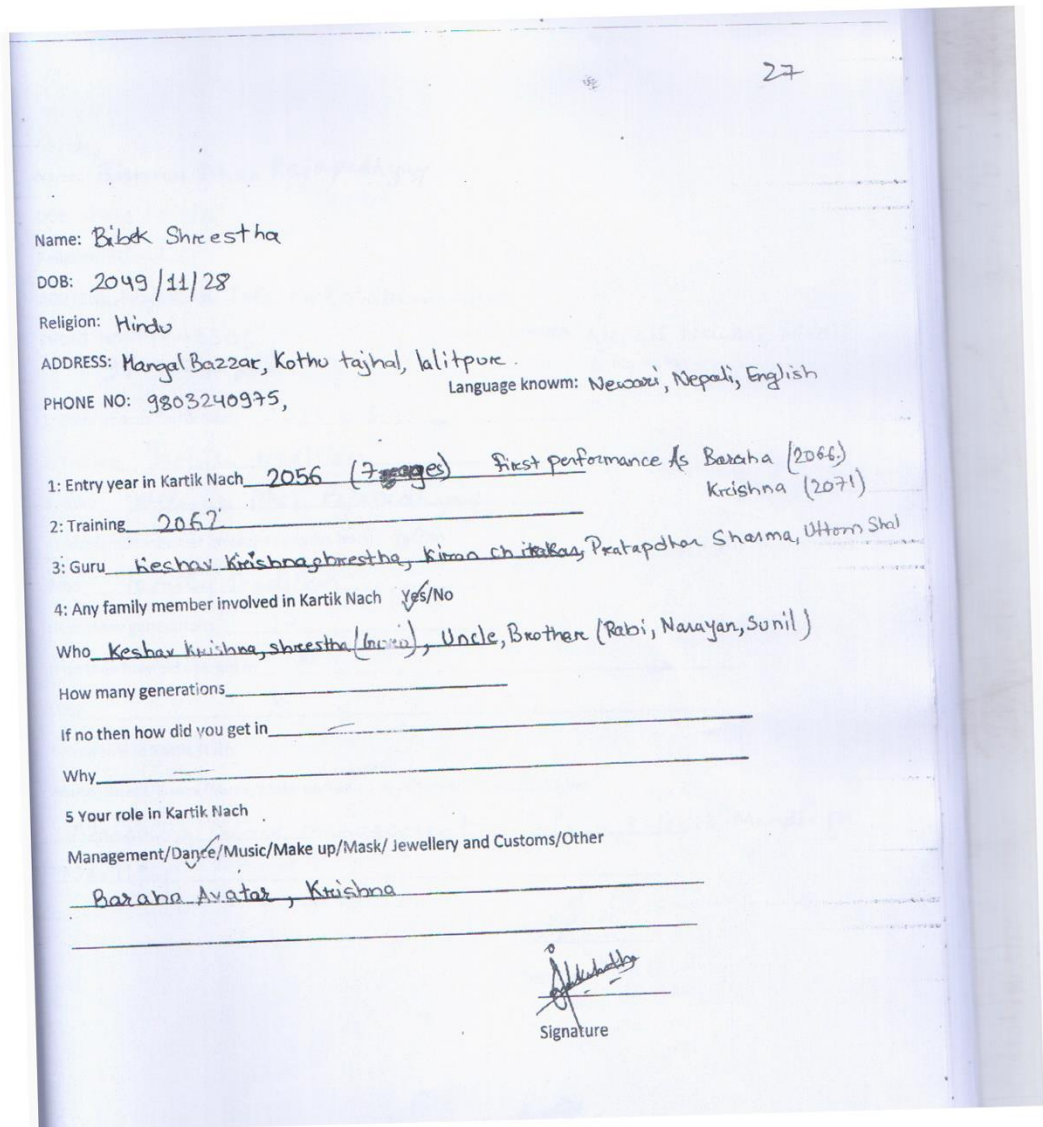 27
Name: Bibek Shreestha
DOB: 2049/11/28
Religion: Hindu
ADDRESS: Mangal Bazzar, Kothu tajhal, lalitpure.
PHONE NO: 9803240975, Language knowm: Newari, Nepali, English
1: Entry year in Kartik Nach 2056 (7 ages) First performance As Baraha (2066)
Krishna (2071)
2: Training 2062
3: Guru Keshav Krishna shrestha, Kiran chitrakar, Pratapdhar Sharma, Uttom
4: Any family member involved in Kartik Nach Yes/No
Who Keshav Krishna, shreestha (), Uncle, Brother (Rabi, Narayan, Sunil)
How many generations
If no then how did you get in
Why
5 Your role in Kartik Nach
Management/Dance/Music/Make up/Mask/ Jewellery and Customs/Other
Baraha Avatar, Krishna
Signature